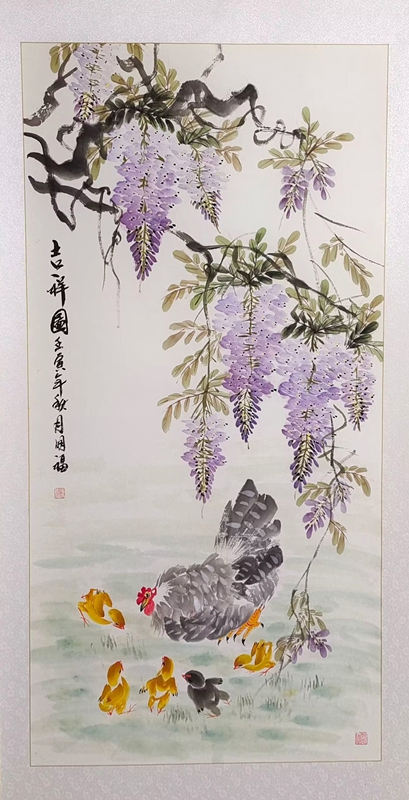 吉祥圖壬寅年秋月明福